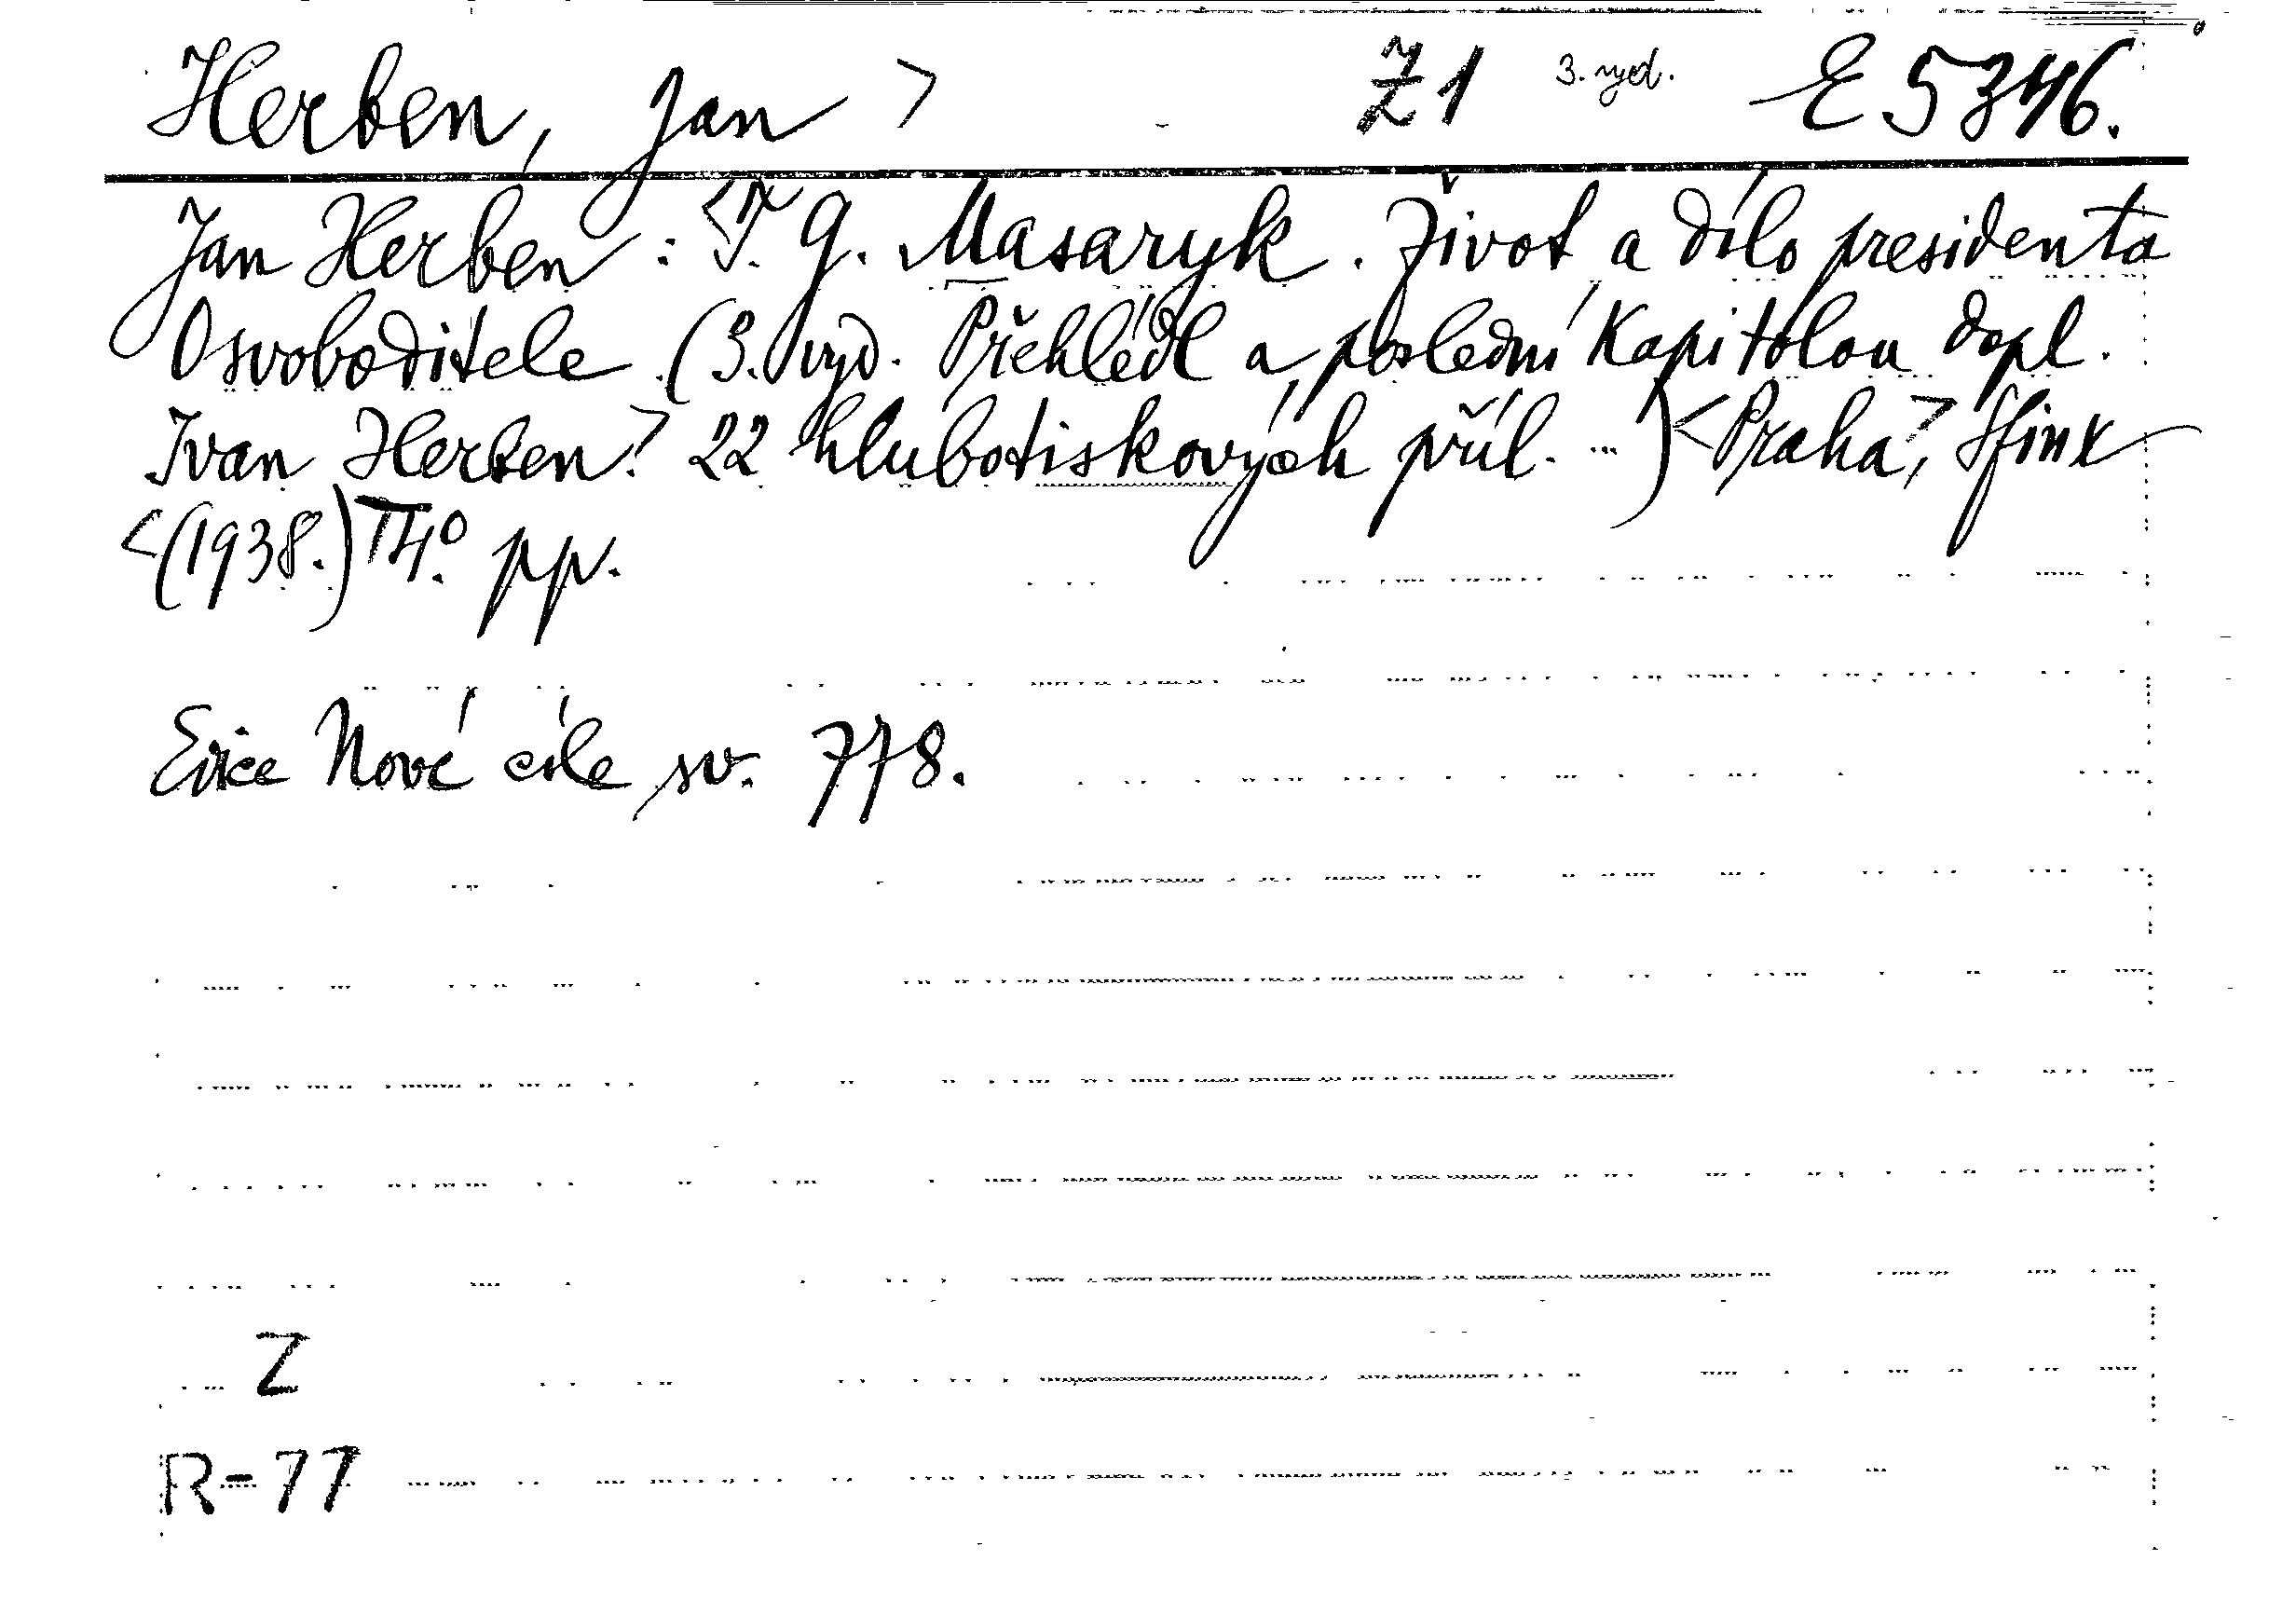 Herben, Jan > Z1 3. vyd. E 5346.
Jan Herben: <T. G. Masaryk. Život a dílo presidenta
Osvoboditele. (3. vyd. Přehlédl a poslední kapitolou dopl.
Ivan Herben.> 22 hlubotiskových příl. ...) <Praha>, Sfinx
<(1938.)> 4.° pp.
Edice Nové cíle sv. 778.
Z
R=77